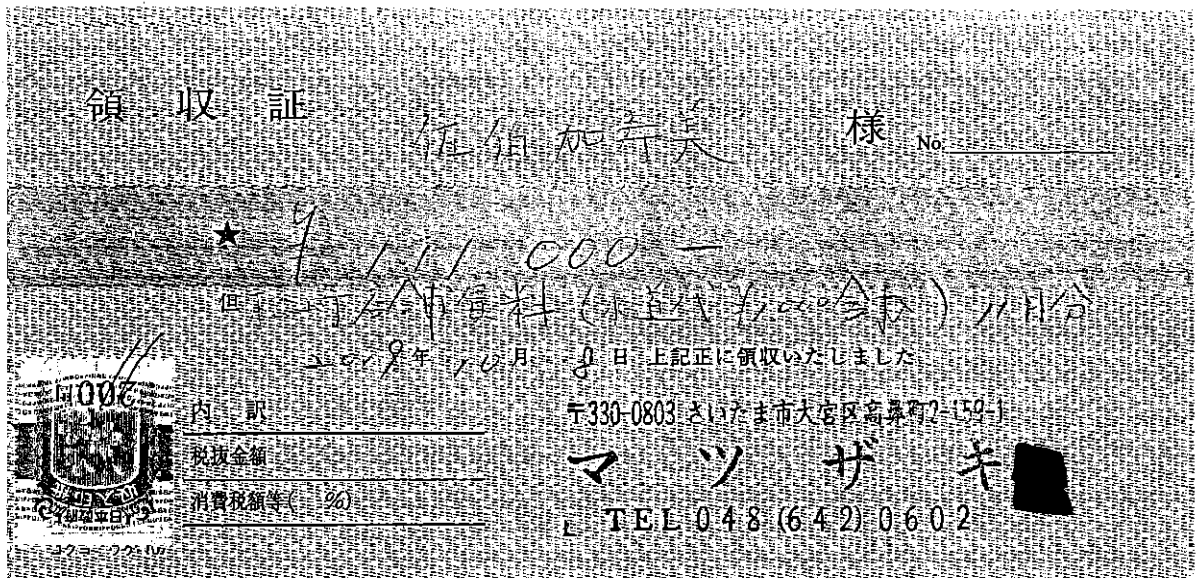 領収証 佐伯加寿美 様 No.
★ ¥111,000—
但 店舗賃料(水道代¥1,000含む) 11月分
2019年 10月 8日 上記正に領収いたしました
200円
日本政府
内訳
税抜金額
消費税額等( %)
〒330-0803 さいたま市大宮区高鼻町2-159-1
マツザキ
TEL 048(642)0602